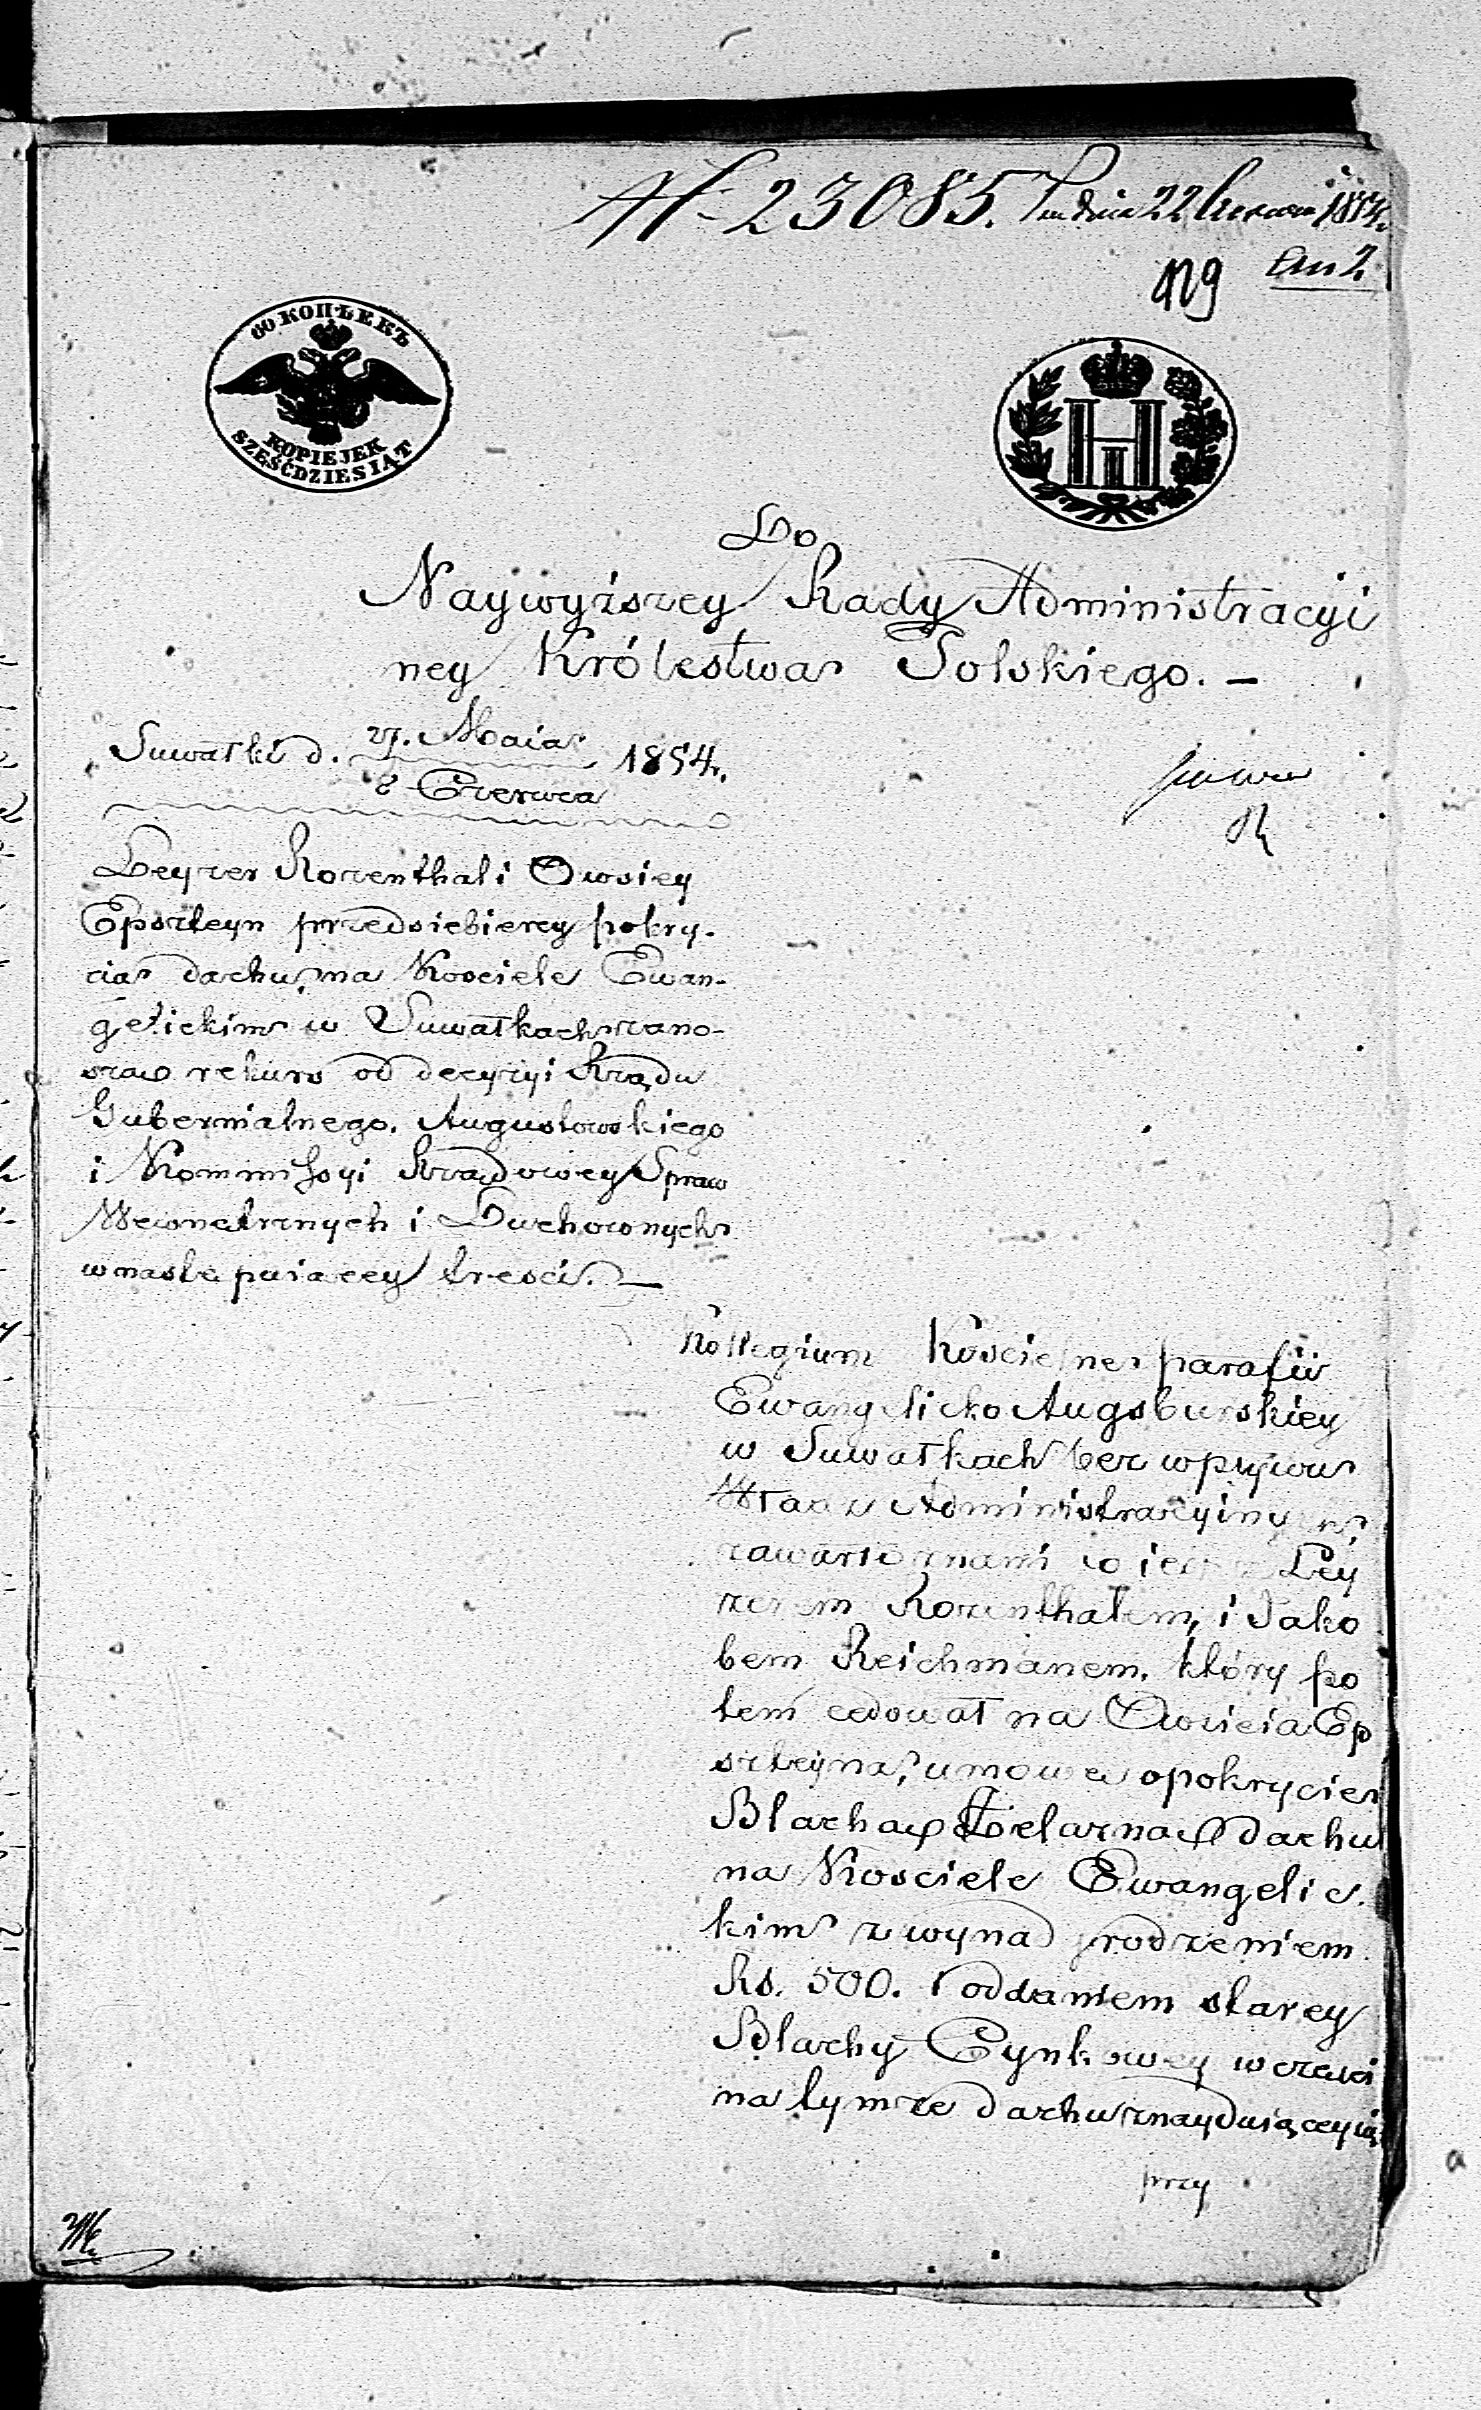 N. 23085. dnia 22 Czerwca 1854.
129
60 КОПѢЕКЪ
KOPIEJEK
SZEŚĆDZIESIĄT
H
Do
Naywyższey Rady Administracyi
ney Królestwa Polskiego. —
Suwałki d. 27. Maia 1854.
8 Czerwca
Leyzer Rozenthal i Owsiey
Epszteyn przedsiebiercy pokry-
cia dachu, na Kosciele Ewan-
gelickim w Suwałkach zano-
szą rekurs od decyzyi Rządu
Gubernialnego. Augustowskiego
i Kommissyi Rządowey Spraw
Wewnętrznych i Duchownych
w nastepuiącey tresci. —
Kollegium Kościelne parafii
Ewangelicko Augsburskiey
w Suwałkach bez wpływu
Władz Administracyinych,
zawarło z nami to iest Ley
zerem Rozenthalem, i Jako
bem Reichmanem, który po
tem cedował na Owsieia Ep
szteyna, umowe o pokrycie
Blachą Żelazną dachu
na Kosciele Ewangelic
kim z wynadgrodzeniem
Rs. 500. i oddaniem starey
Blachy Cynkowey w części
na tymże dachu znayduiącey się
przy